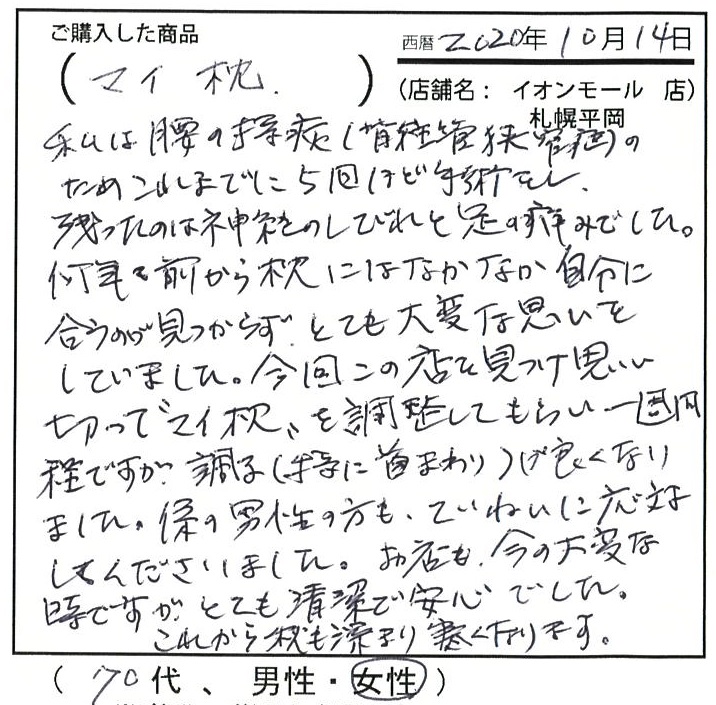 ご購入した商品
西暦 2020年 10月 14日
( マイ 枕 )
(店舗名: イオンモール 店)
札幌平岡
私は腰の持病(脊柱管狭窄症)の
ためこれまでに5回ほど手術をし、
残ったのは神経のしびれと足の痛みでした。
何年も前から枕にはなかなか自分に
合うのが見つからず、とても大変な思いを
していました。今回この店を見つけ思い
切って"マイ枕"を調整してもらい一週間
程ですが、調子(特に首まわり)が良くなり
ました。係の男性の方も、ていねいに応対
してくださいました。お店も、今の大変な
時ですが、とても清潔で安心でした。
これから秋も深まり寒くなります。
( 70代 、 男性・女性 )